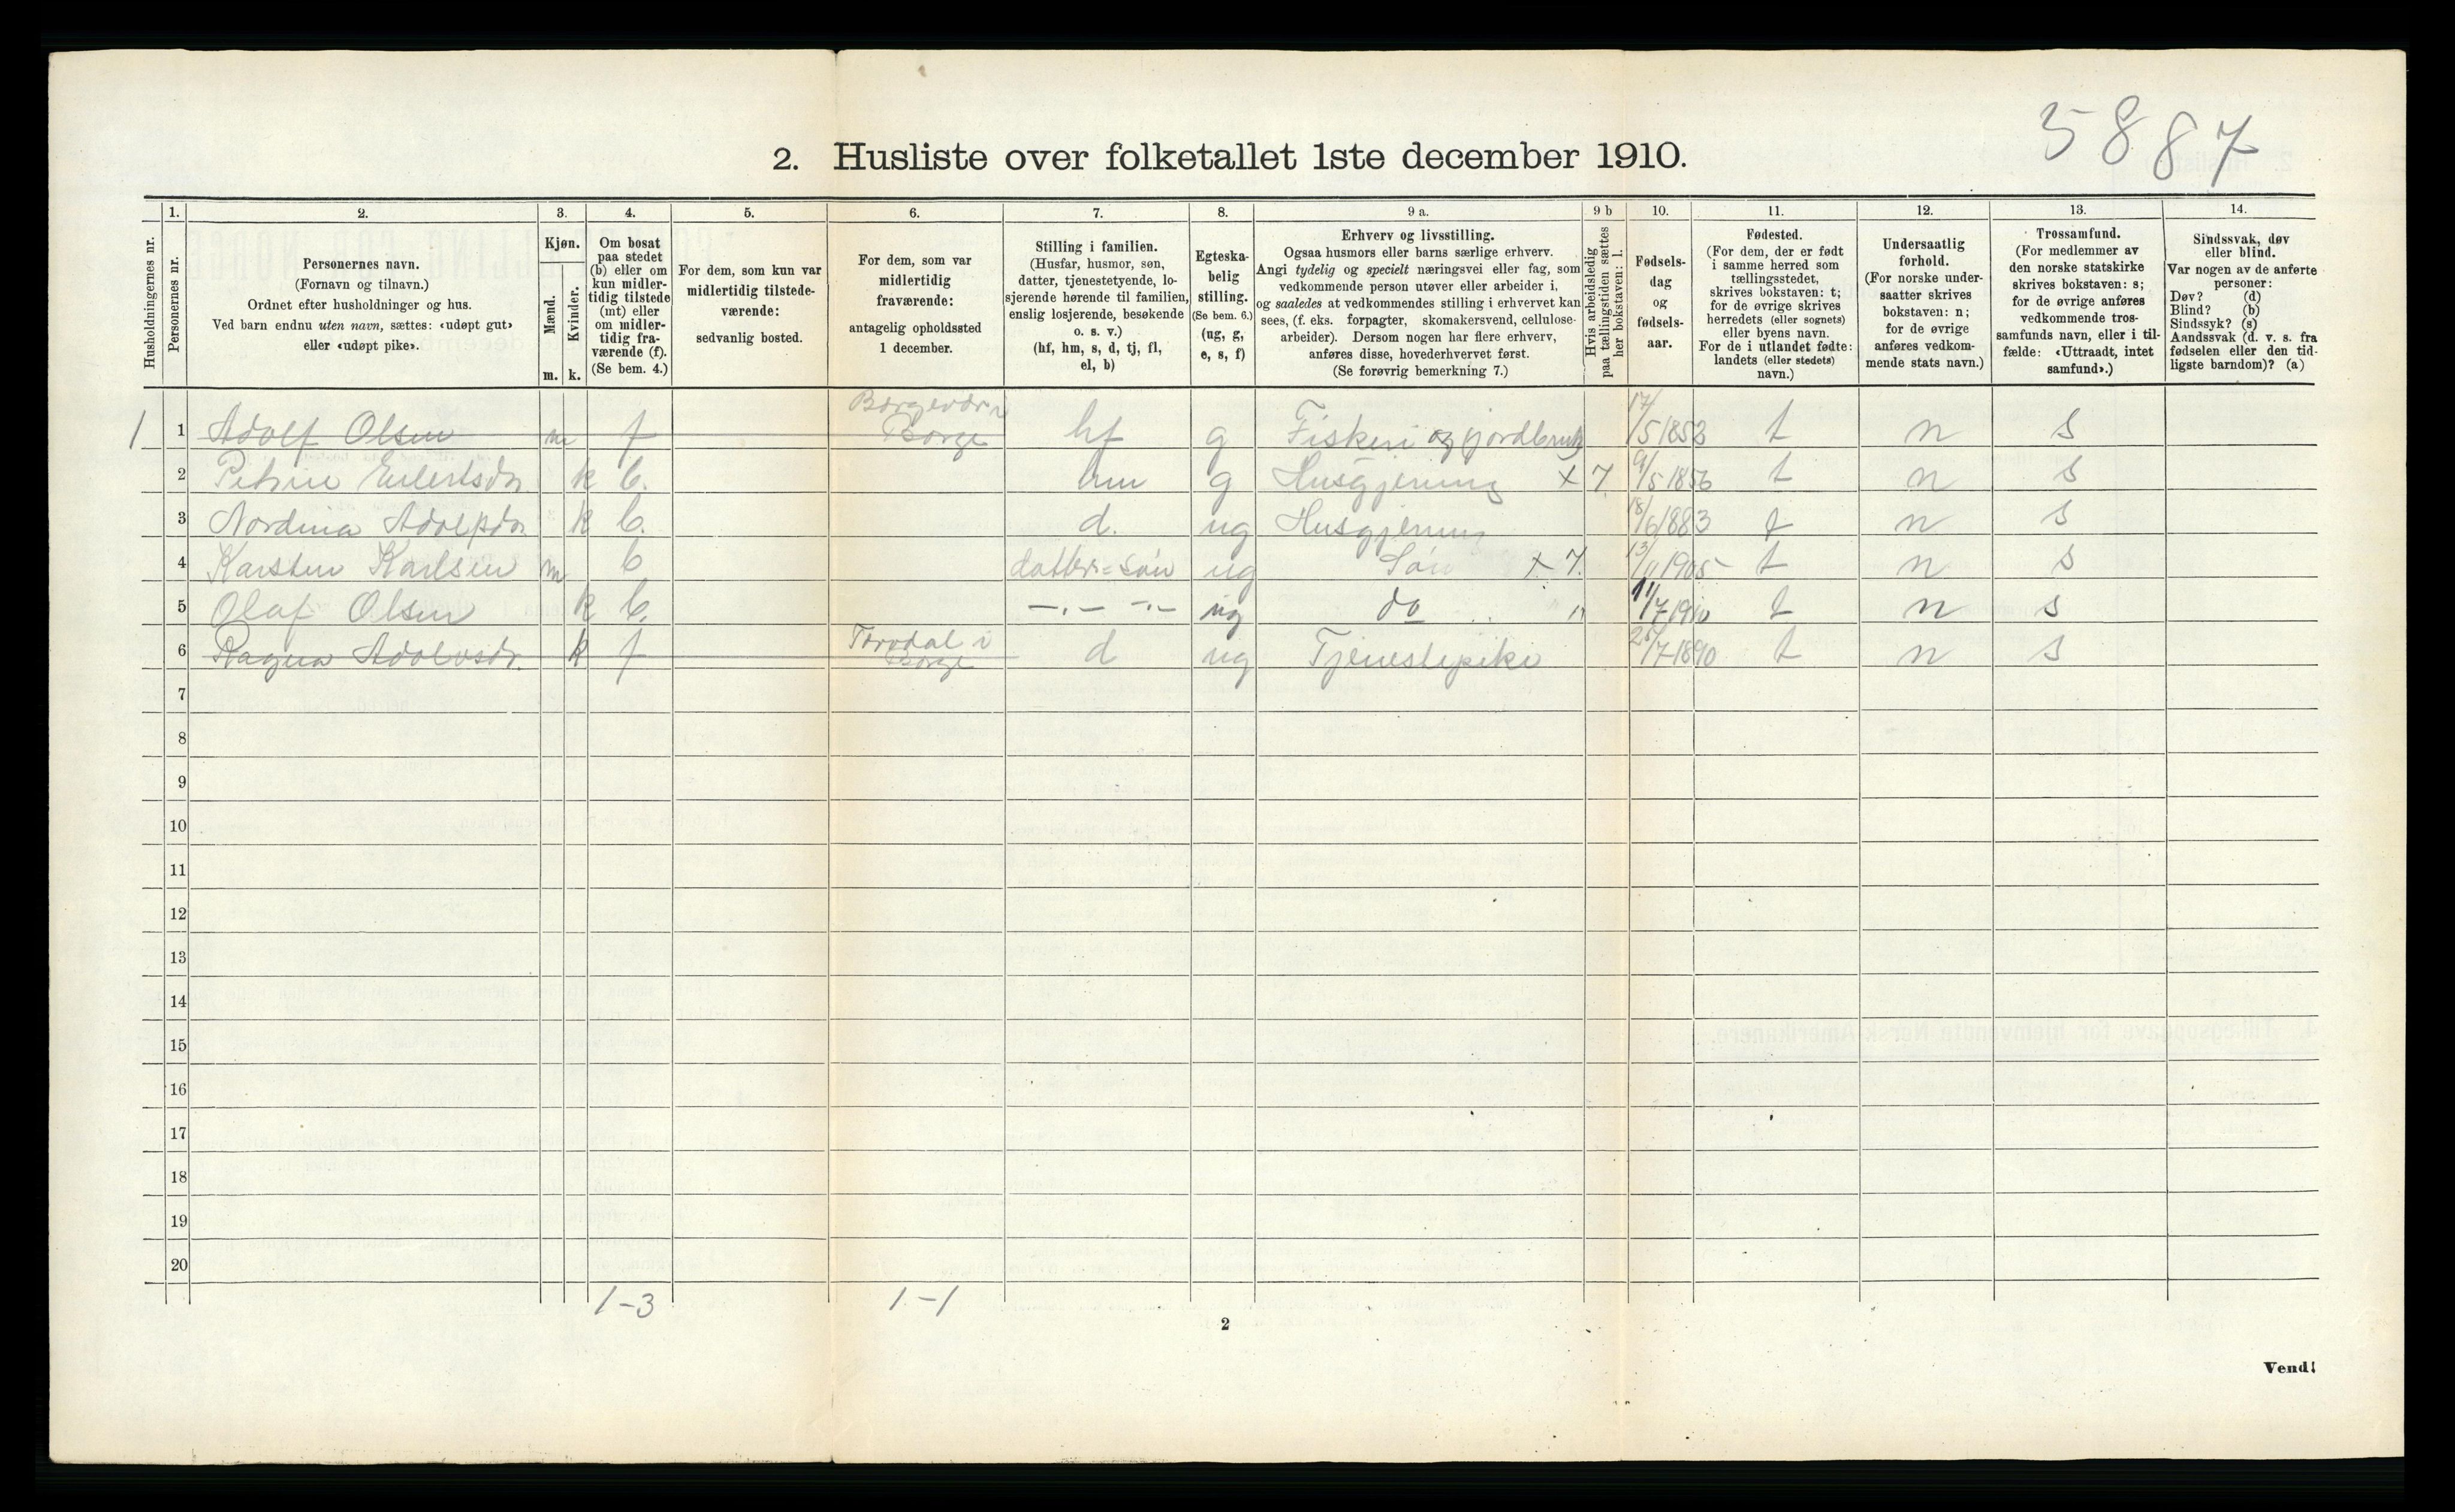 5887
2. Husliste over folketallet 1ste december 1910.
Husholdningernes nr.
1.
Personernes nr.
2.
Personernes navn.
(Fornavn og tilnavn.)
Ordnet efter husholdninger og hus.
Ved barn endnu uten navn, sættes: «udøpt gut»
eller «udøpt pike».
3.
Kjøn.
Mænd.
Kvinder.
m. k.
4.
Om bosat
paa stedet
(b) eller om
kun midler-
tidig tilstede
(mt) eller
om midler-
tidig fra-
værende (f).
(Se bem. 4.)
5.
For dem, som kun var
midlertidig tilstede-
værende:
sedvanlig bosted.
6.
For dem, som var
midlertidig
fraværende:
antagelig opholdssted
1 december.
7.
Stilling i familien.
(Husfar, husmor, søn,
datter, tjenestetyende, lo-
sjerende hørende til familien,
enslig losjerende, besøkende
o. s. v.)
(hf, hm, s, d, tj, fl,
el, b)
8.
Egteska-
belig
stilling.
(Se bem. 6.)
(ug, g,
e, s, f)
9 a.
Erhverv og livsstilling.
Ogsaa husmors eller barns særlige erhverv.
Angi tydelig og specielt næringsvei eller fag, som
vedkommende person utøver eller arbeider i,
og saaledes at vedkommendes stilling i erhvervet kan
sees, (f. eks. forpagter, skomakersvend, cellulose-
arbeider). Dersom nogen har flere erhverv,
anføres disse, hovederhvervet først.
(Se forøvrig bemerkning 7.)
9 b
Hvis arbeidsledig
paa tællingstiden sættes
her bokstaven: l.
10.
Fødsels-
dag
og
fødsels-
aar.
11.
Fødested.
(For dem, der er født
i samme herred som
tællingsstedet,
skrives bokstaven: t;
for de øvrige skrives
herredets (eller sognets)
eller byens navn.
For de i utlandet fødte:
landets (eller stedets)
navn.)
12.
Undersaatlig
forhold.
(For norske under-
saatter skrives
bokstaven: n;
for de øvrige
anføres vedkom-
mende stats navn.)
13.
Trossamfund.
(For medlemmer av
den norske statskirke
skrives bokstaven: s;
for de øvrige anføres
vedkommende tros-
samfunds navn, eller i til-
fælde: «Uttraadt, intet
samfund».)
14.
Sindssvak, døv
eller blind.
Var nogen av de anførte
personer:
Døv? (d)
Blind? (b)
Sindssyk? (s)
Aandssvak (d. v. s. fra
fødselen eller den tid-
ligste barndom)? (a)
1 1 Adolf Olsen m f Borge hf g Fiskeri og jordbruk 17/5 1853 t n s
2 Petrine Eilertsdr. k b. hm g Husgjerning x 7. 9/5 1856 t n s
3 Nordina Adolfsdr. k b. d. ug Husgjerning 18/6 1883 t n s
4 Karsten Karlsen m b datter-søn ug Søn x 7. 13/11 1905 t n s
5 Olaf Olsen k b. —"— —"— ug do " 11/7 1910 t n s
6 Ragna Adolvsdr. k f Torvdal i Borge d ug Tjenestepike 25/7 1890 t n s
7
8
9
10
11
12
13
14
15
16
17
18
19
20
1-3 1-1
2
Vend!